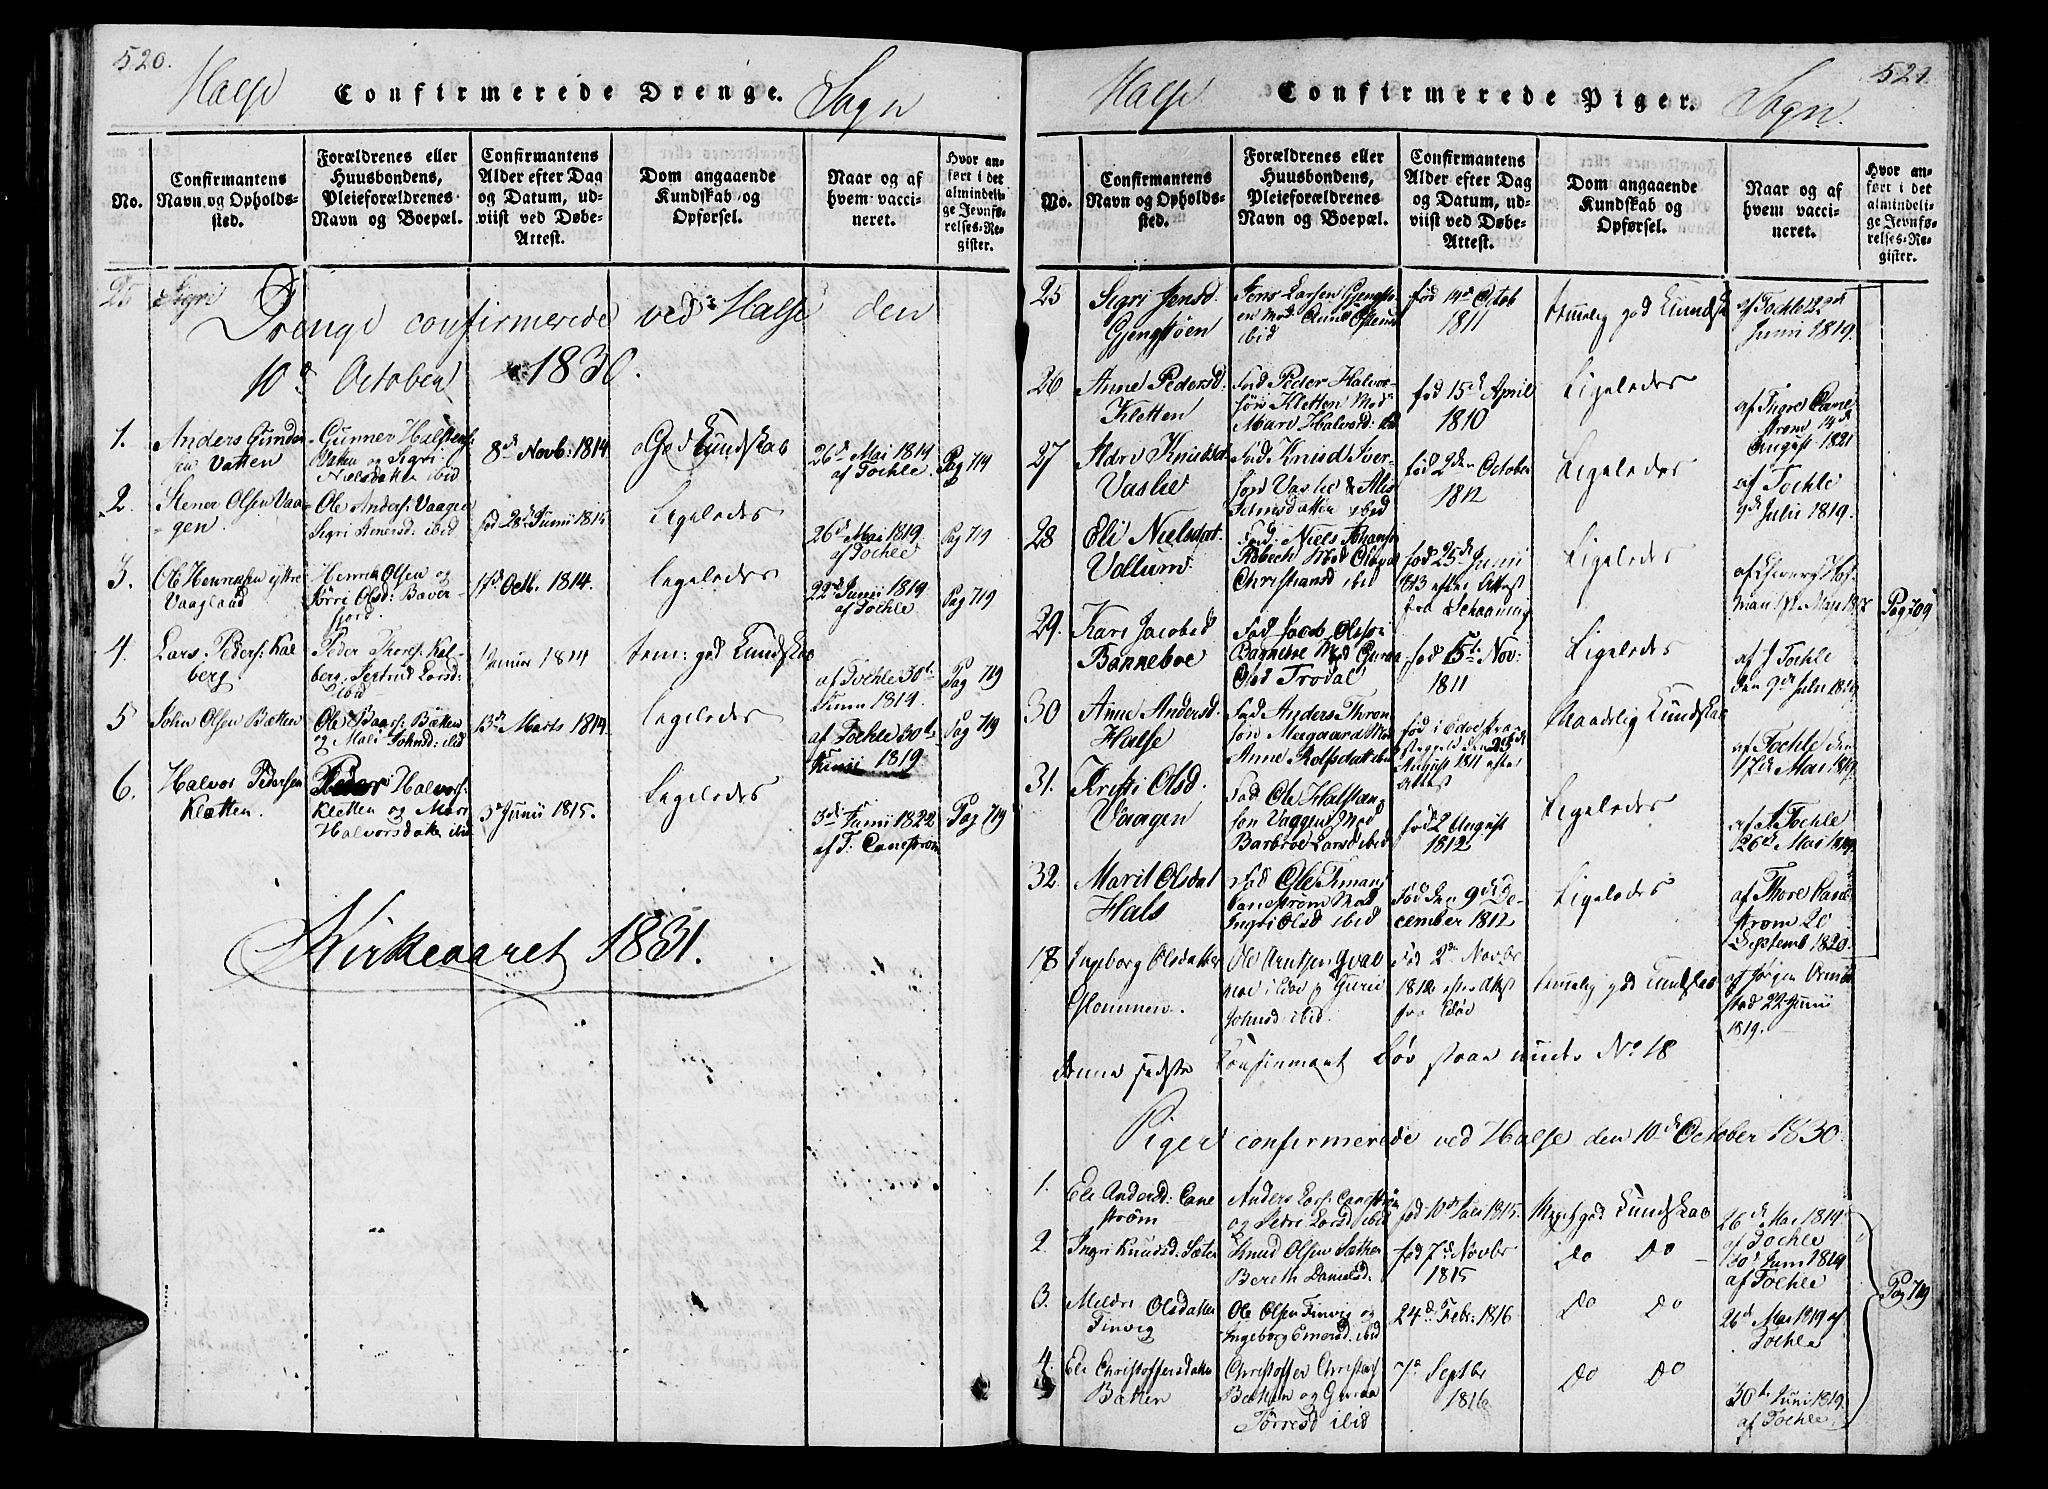 520.
Halse Confirmerede Drenge. Sogn
No.
Confirmantens
Navn og Opholds-
sted.
Forældrenes eller
Huusbondens,
Pleieforældrenes
Navn og Boepæl.
Confirmantens
Alder efter Dag
og Datum, ud-
viist ved Døbe-
Attest.
Dom angaaende
Kundskab og
Opførsel.
Naar og af
hvem vacci-
neret.
Hvor an-
ført i det
almindeli-
ge Jevnfø-
relses-Re-
gister.
25 Sigri
Drenge confirmerede ved Halse den
10de October 1830.
1.
Anders
Vatten
Gunner Halstens:
Vatten og Sigri
Nielsdatter ibid
8de Novb: 1814
God Kundskab
26de Mai 1814
af Tochle
Pag 719
2.
Stener Olsen Vaa-
gen
Ole Anders: Vaagen
Sigri Stenersd: ibid
fød 28de Junii 1815
Ligeledes
26de Mai 1819
af Tochle
Pag 719
3.
Ole Henriksen yttre
Vaagland
Henrik Olsen og
Olsd: Bæver-
fjord.
1ste Octb. 1814.
Ligeledes
22de Junii 1819
af Tochle
Pag 719
4.
Lars Peders: Kal
berg
Peder Thores: Kal-
berg, Larsd:
ibid
1814
tem: god Kundskab
af Tochle 30te
Junii 1819.
Pag 719
5
John Olsen Bætten
Ole Baars: Bætten
og Mali Johnsd: ibid
13de Marts 1814.
Ligeledes
af Tochle 30te
Junii 1819
Pag 719
6.
Halvor Pedersen
Kletten.
Peder Halvors:
Kletten og Mari
Halvorsdatter ibid
3de Junii 1815.
Ligeledes
3de Junii 1822
af T: Canestrøm
Pag 719
Kirkeaaret 1831.
521.
Halse Confirmerede Piger. Sogn.
No.
Confirmantens
Navn og Opholds-
sted.
Forældrenes eller
Huusbondens,
Pleieforældrenes
Navn og Boepæl.
Confirmantens
Alder efter Dag
og Datum, ud-
viist ved Døbe-
Attest.
Dom angaaende
Kundskab og
Opførsel.
Naar og af
hvem vacci-
neret.
Hvor an-
ført i det
almindeli-
ge Jevnfø-
relses-Re-
gister.
25
Sigri Jensd.
Gjengstøen
Jens Larsen Gjengstø-
en Mod: Anne
ibid
fød 14de Octob
1811
temmelig god Kundsk
af Tochle 22de
Junii 1819.
26
Anne Pedersd.
Kletten
Fad Peder Halvor-
søn Kletten Mod
Mari Halvorsd: ibid
fød 15de April
1810
Ligeledes
af Thore Cane-
strøm 14de
August 1821
27
Knudsd.
Vaslie
Fad Knud Iver-
søn Vaslie &
ibid
fød 2den October
1812
Ligeledes
af Tochle
9de Julii 1819.
28
Eli Nielsdat.
Vollum
Fad. Niels Johansen
Robech Mod
Christiansd ibid
fød 25de Junii
1813 efter Attest
fra
Ligeledes
Pag 709
29.
Kari Jacobsd
Bonneboe
Fad Jacob Olsson
Bonneboe Mod Guroe
Olsd Trodal
fød 5te Nov:
1811
Ligeledes
af J Tochle
den 9de Julii 1819
30
Anne Andersd.
Halse
Fad Anders Thron-
søn Aasgaard Mod
Anne Rolfsdatt ibid
August 1811 efter
Attest
Maadelig Kundskab
af Tochle den
17de Mai 1819.
31.
Kristi Olsd.
Vaagen
Fad Ole Halstan-
søn Vaagen Mod
Barbroe Larsd ibid
fød 2 August
1812
Ligeledes
af Tochle
26de Mai 1819.
32
Marit Olsdat
Hals
Fad Ole
Canestrøm Mod
Ingri Olsd ibid
Fød den 9de De-
cember 1812
Ligeledes
af Thore Cane
strøm 20
Septemb 1820.
18
Ingeborg Olsdatter
Glommen.
Ole Arntsen
i Edøe og Guri
Johnsd: ibid.
Fød 2de Novbr
1812 efter Attest
fra Edøe
temmelig god Kundskab
af Jørgen
22 Junii
1819.
Denne sidste Confirmant bør staae under No 18
Piger confirmerede ved Halse den 10de October 1830.
1.
Eli Andersd: Cane
strøm
Anders Lars: Canestrøm
og Pedri Larsd ibid
fød 10de Jan 1815.
Meget god Kundskab
26de Mai 1819
af Tochle
2.
Ingri Knudsd: Sæter
Knud Olsen Sæther
Bereth Danielsd:
fød 7de Novbr
1815
Do Do
30te Junii 1819
af Tochle
3.
Meldri Olsdatter
Finvig
Ole Olsen Finvig og
Ingeborg Einersd. ibid
24de Febr: 1816
Do Do
26de Mai 1819 af
Tochle
Pag 719
4.
Eli Christoffersdatter
Bætten
Christoffer Christofs
Bætten og Guroe
Torresd ibid
7de Septbr
1816
Do Do
30te Juni 1819.
af Tochle